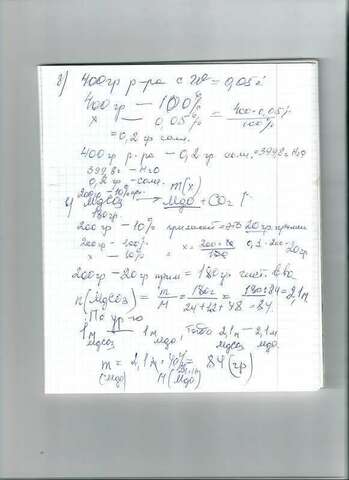 8) 400гр р-ра с W = 0,05%
400гр — 100%
х — 0,05% = 400·0,05% / 100%
= 0,2 гр соли.
400гр р-ра — 0,2 гр соли = 399,8г H2O
399,8 — H2O
0,2 гр - соли.
200гр - 10% пр. m(x)
MgCO3 → MgO + CO2 ↑
180гр.
200гр — 10% примесей = это 20гр примеси
200гр — 100%
х — 10% = х = 200·10 / 100 0,1·200 = 20гр
200гр — 20гр прим = 180гр чист. в-ва
n(MgCO3) = m / M = 180г / 24+12+48 = 180:84 = 2,1м
По ур-ю
1м MgCO3 1м MgO, тобто 2,1м MgCO3 — 2,1м MgO
m (MgO) = 2,1м · 40 M(MgO) = 84 (гр)